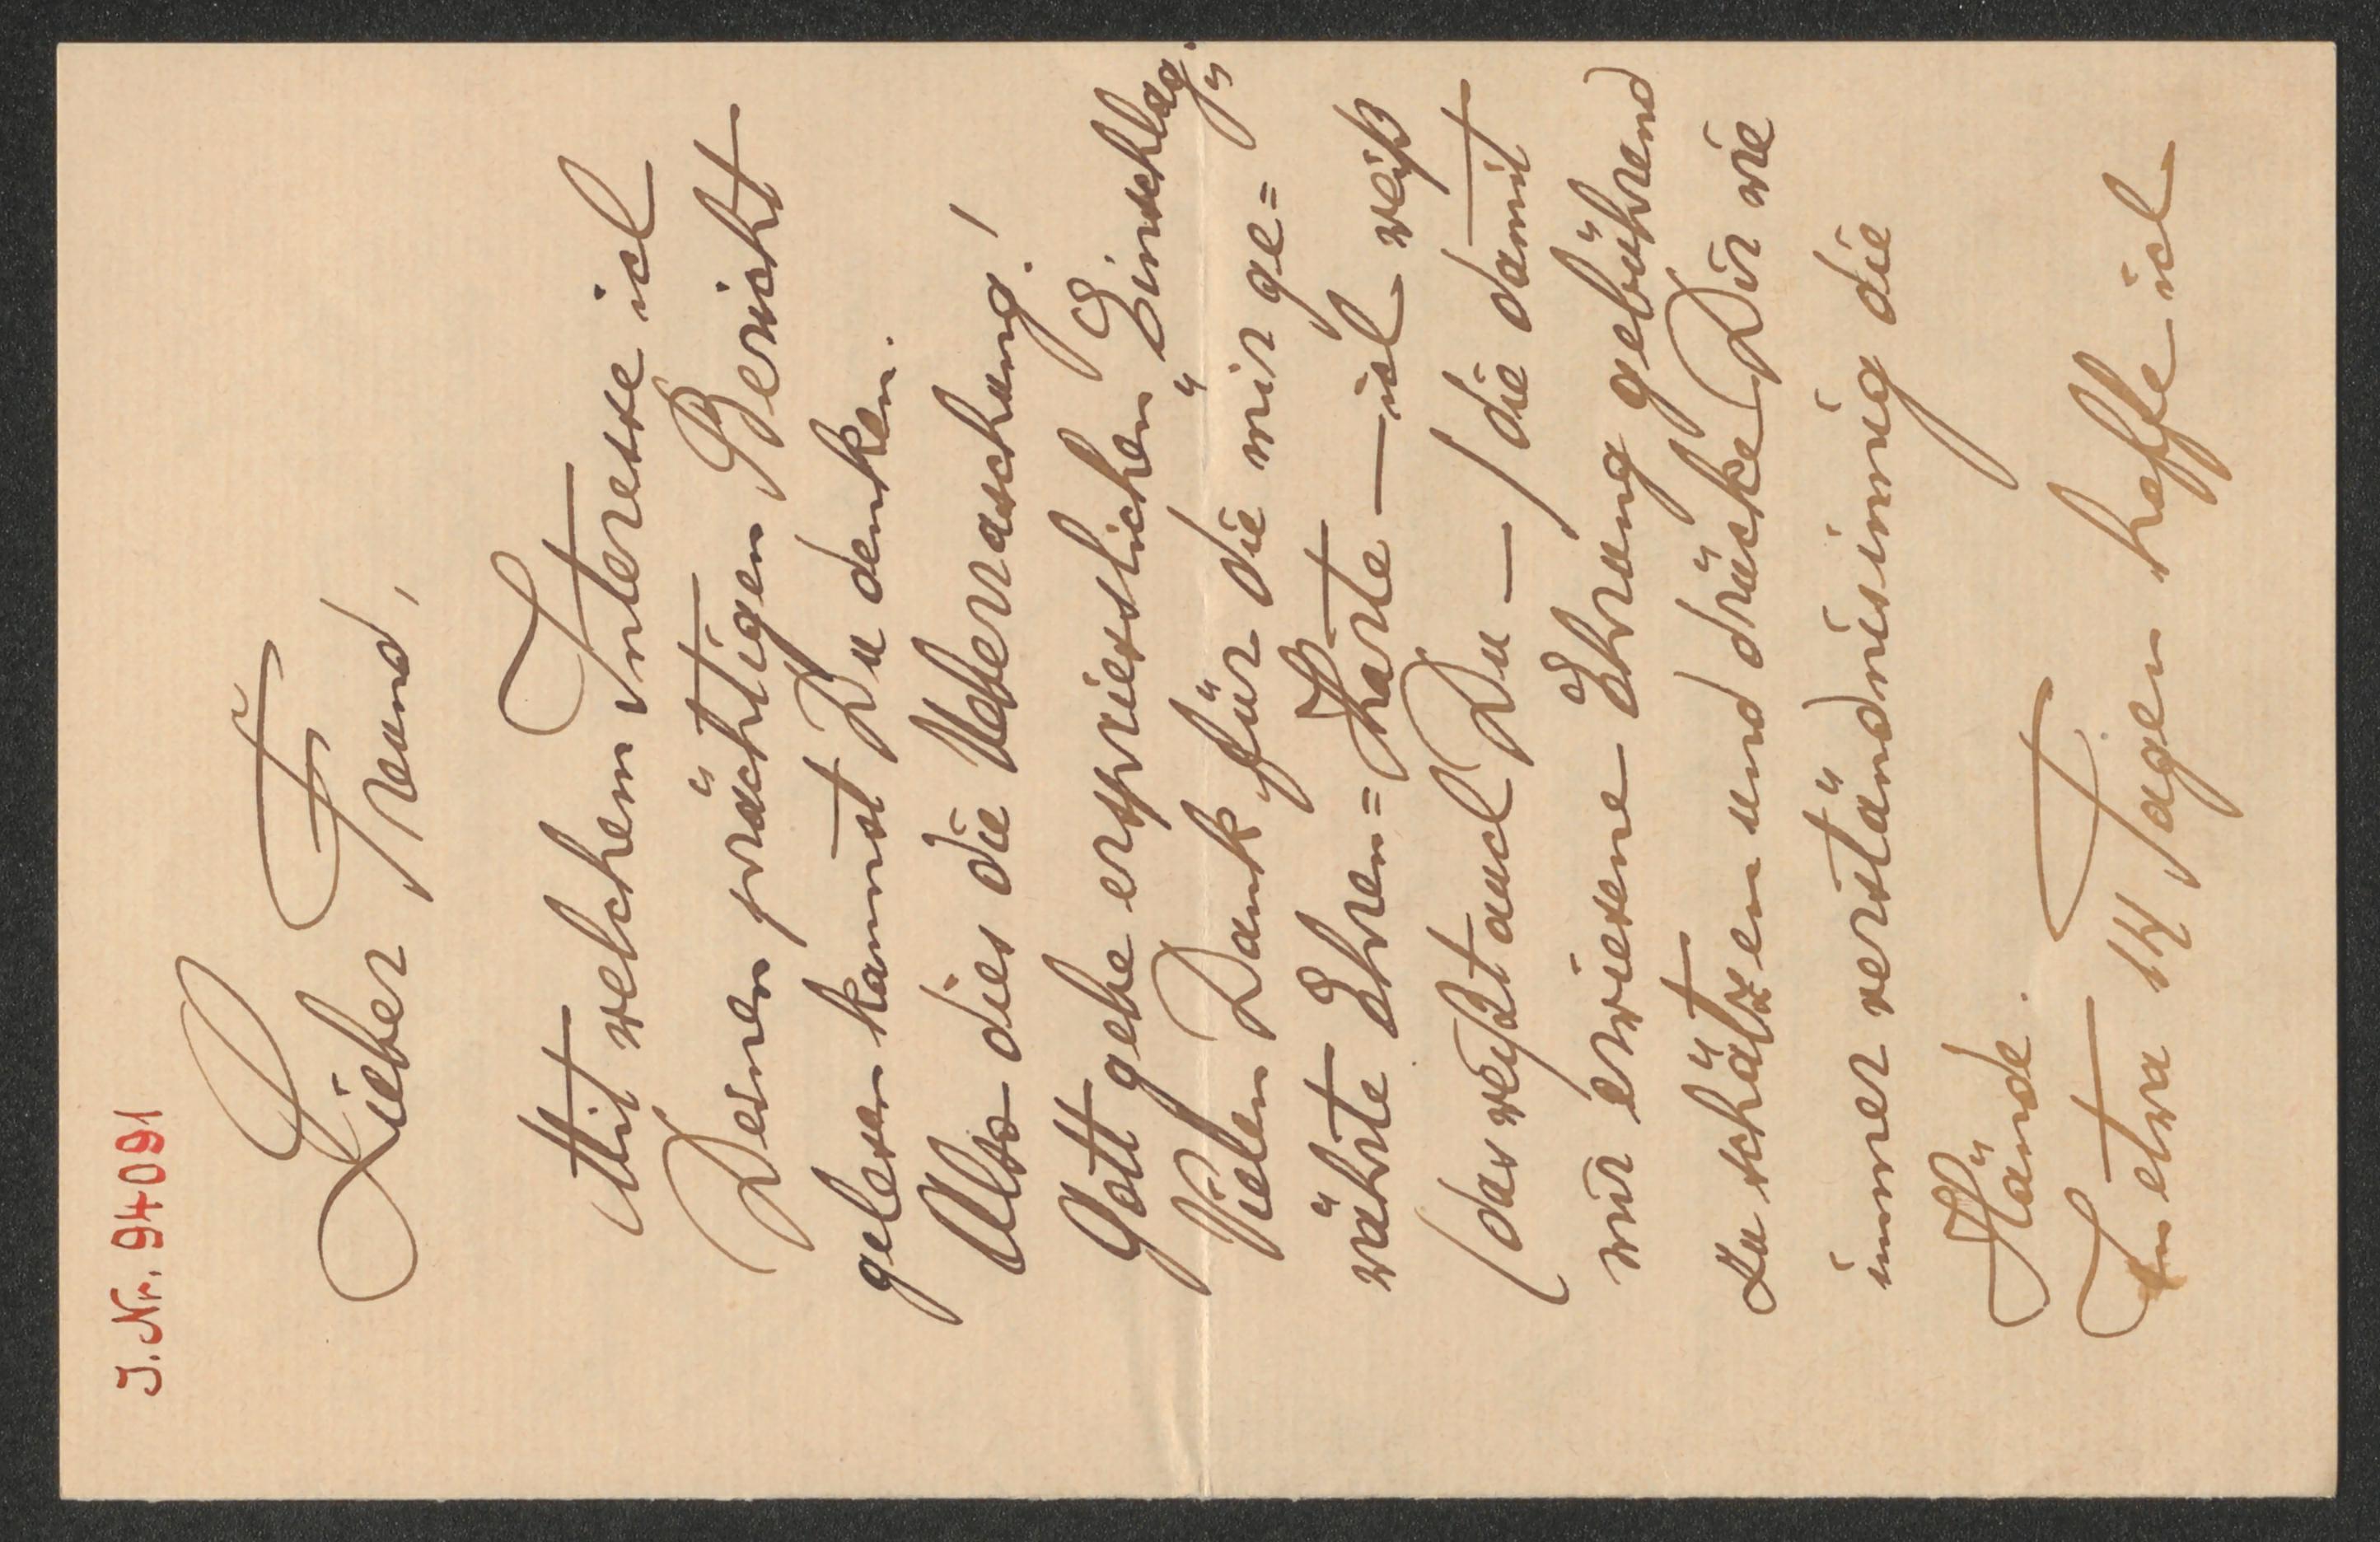 J. Nr. 94091
Lieber Freund,
Mit welchem Interesse ich
Deinen prächtigen Bericht
gelesen kannst Du denken.
Also dies die Ueberraschung!
Gott gebe erspriesslichen „Einschlag“.
Vielen Dank für die mir ge=
währte Ehren=Karte — ich weiß
(das weißt auch Du —) die damit
mir erwiesene Ehrung gebührend
zu schätzen und drücke Dir wie
immer verständnisinnig die
Hände.
In etwa 14 Tagen hoffe ich